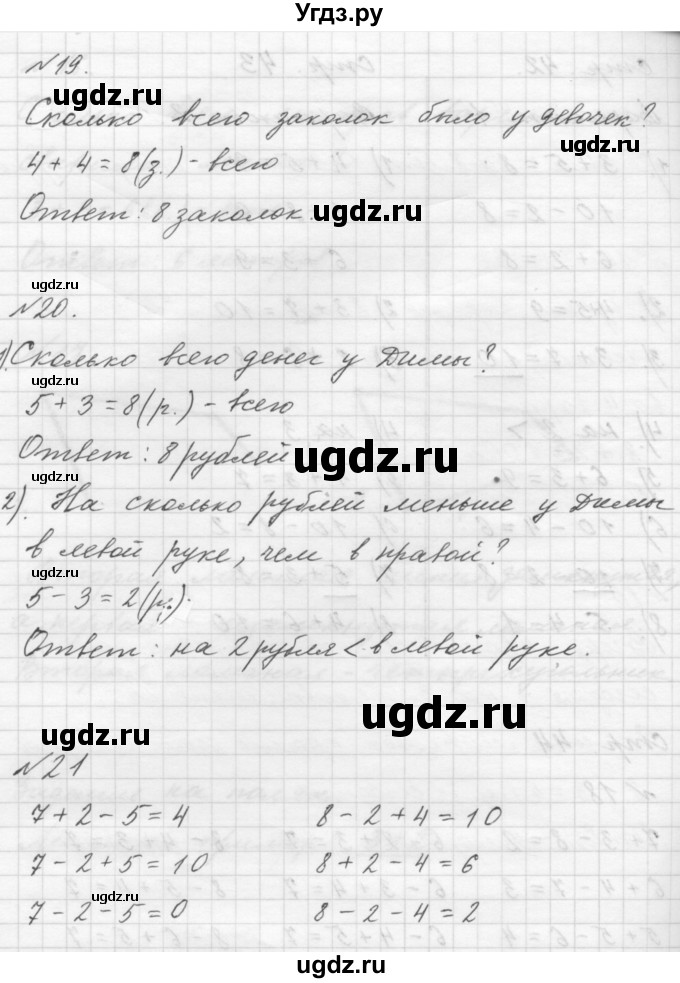 Угдз.ру
№19.
Сколько всего заколок было у девочек?
4 + 4 = 8 (з.) - всего
Ответ: 8 заколок.
№20.
1). Сколько всего денег у Димы?
5 + 3 = 8 (р.) - всего
Ответ: 8 рублей
2). На сколько рублей меньше у Димы
в левой руке, чем в правой?
5 - 3 = 2 (р.).
Ответ: на 2 рубля < в левой руке.
№21
7 + 2 - 5 = 4 8 - 2 + 4 = 10
7 - 2 + 5 = 10 8 + 2 - 4 = 6
7 - 2 - 5 = 0 8 - 2 - 4 = 2
ugdz.ru